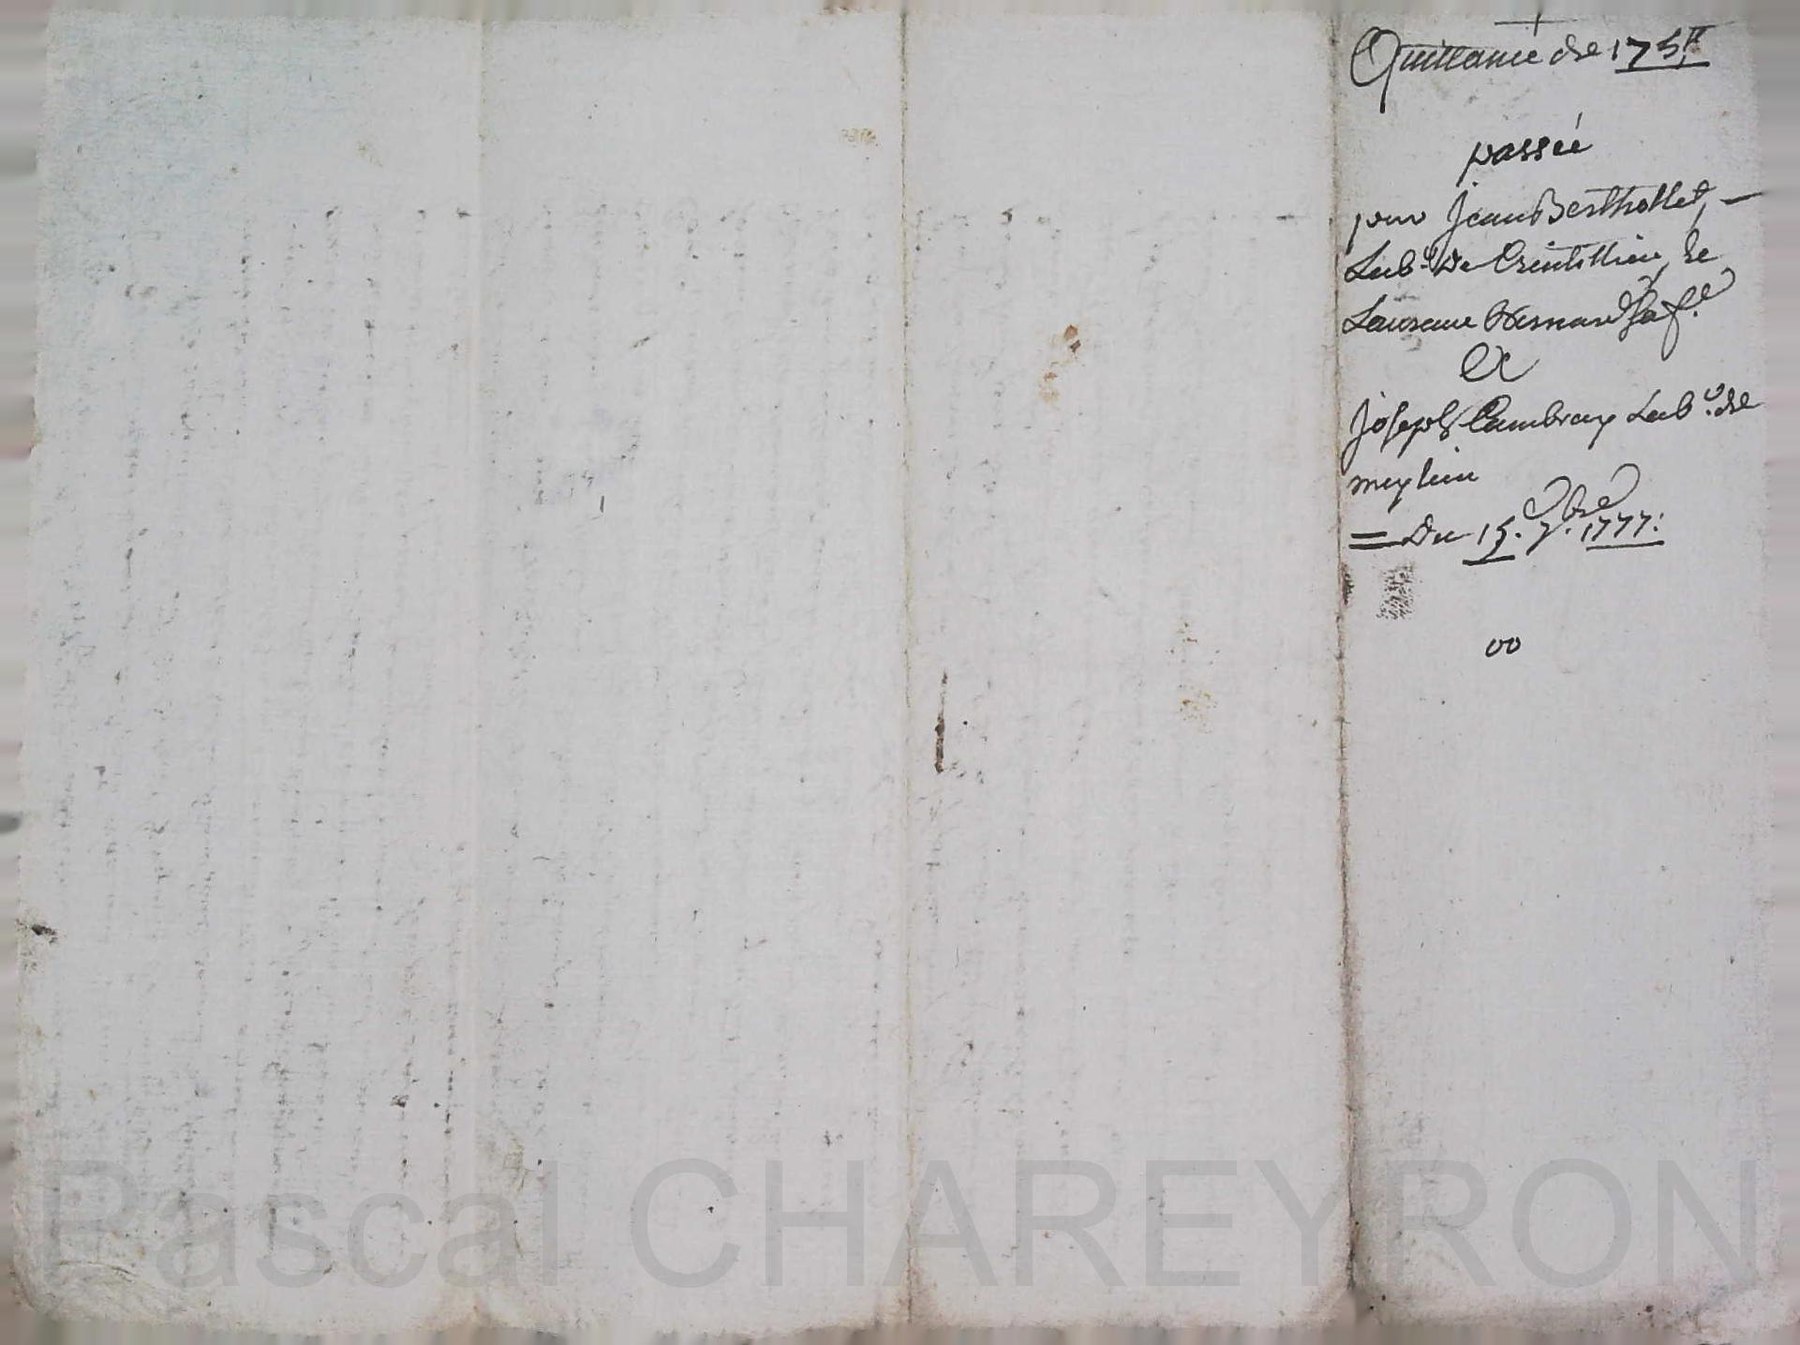 Quittance de 175ᵗᵗ
passée
pour Jean Berthollet, —
Labʳ. De Crintillieu, &
Laurence Bernard sa fᵉ.
A
Joseph Cambray Labʳ. de
meylieu
= Du 15. 7.ᵇʳᵉ 1777.
00
Pascal CHAREYRON